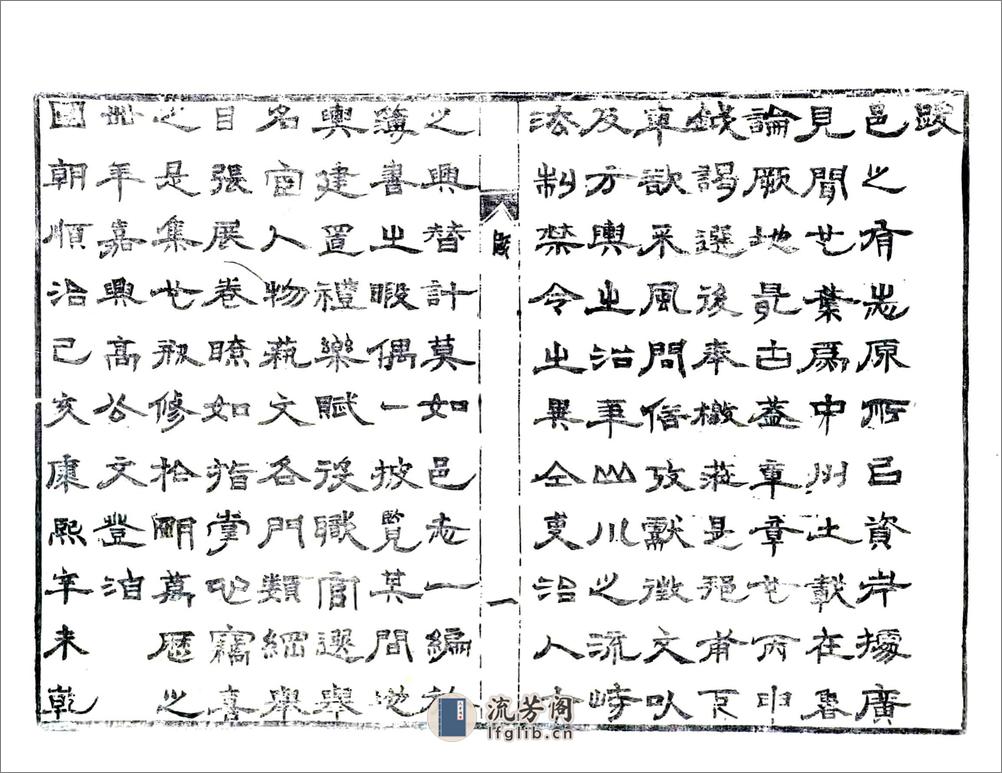 跋
邑之有志原所㠯資考據廣
見聞也葉爲中州土載在魯
論厥地最古蓋章章也丙申
謁選後奉檄蒞是邑甫下
車欲采風問俗攷獻徵文以
及方輿之沿革山川之流峙
法制禁令之異仝吏治人才
跋
一
之興替計莫如邑志一編於
簿書之暇偶一披覽其間地
輿建置禮樂賦役職官選舉
名宦人物蓺文各門類綱舉
目張展卷瞭如指掌心竊喜
之是集也刱修於明萬厯之
卅年嘉興高公文登洎
國朝順治己亥康熙辛未乾
流芳阁
lfglib.cn